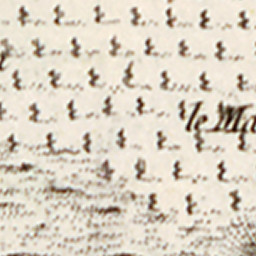 le Ma